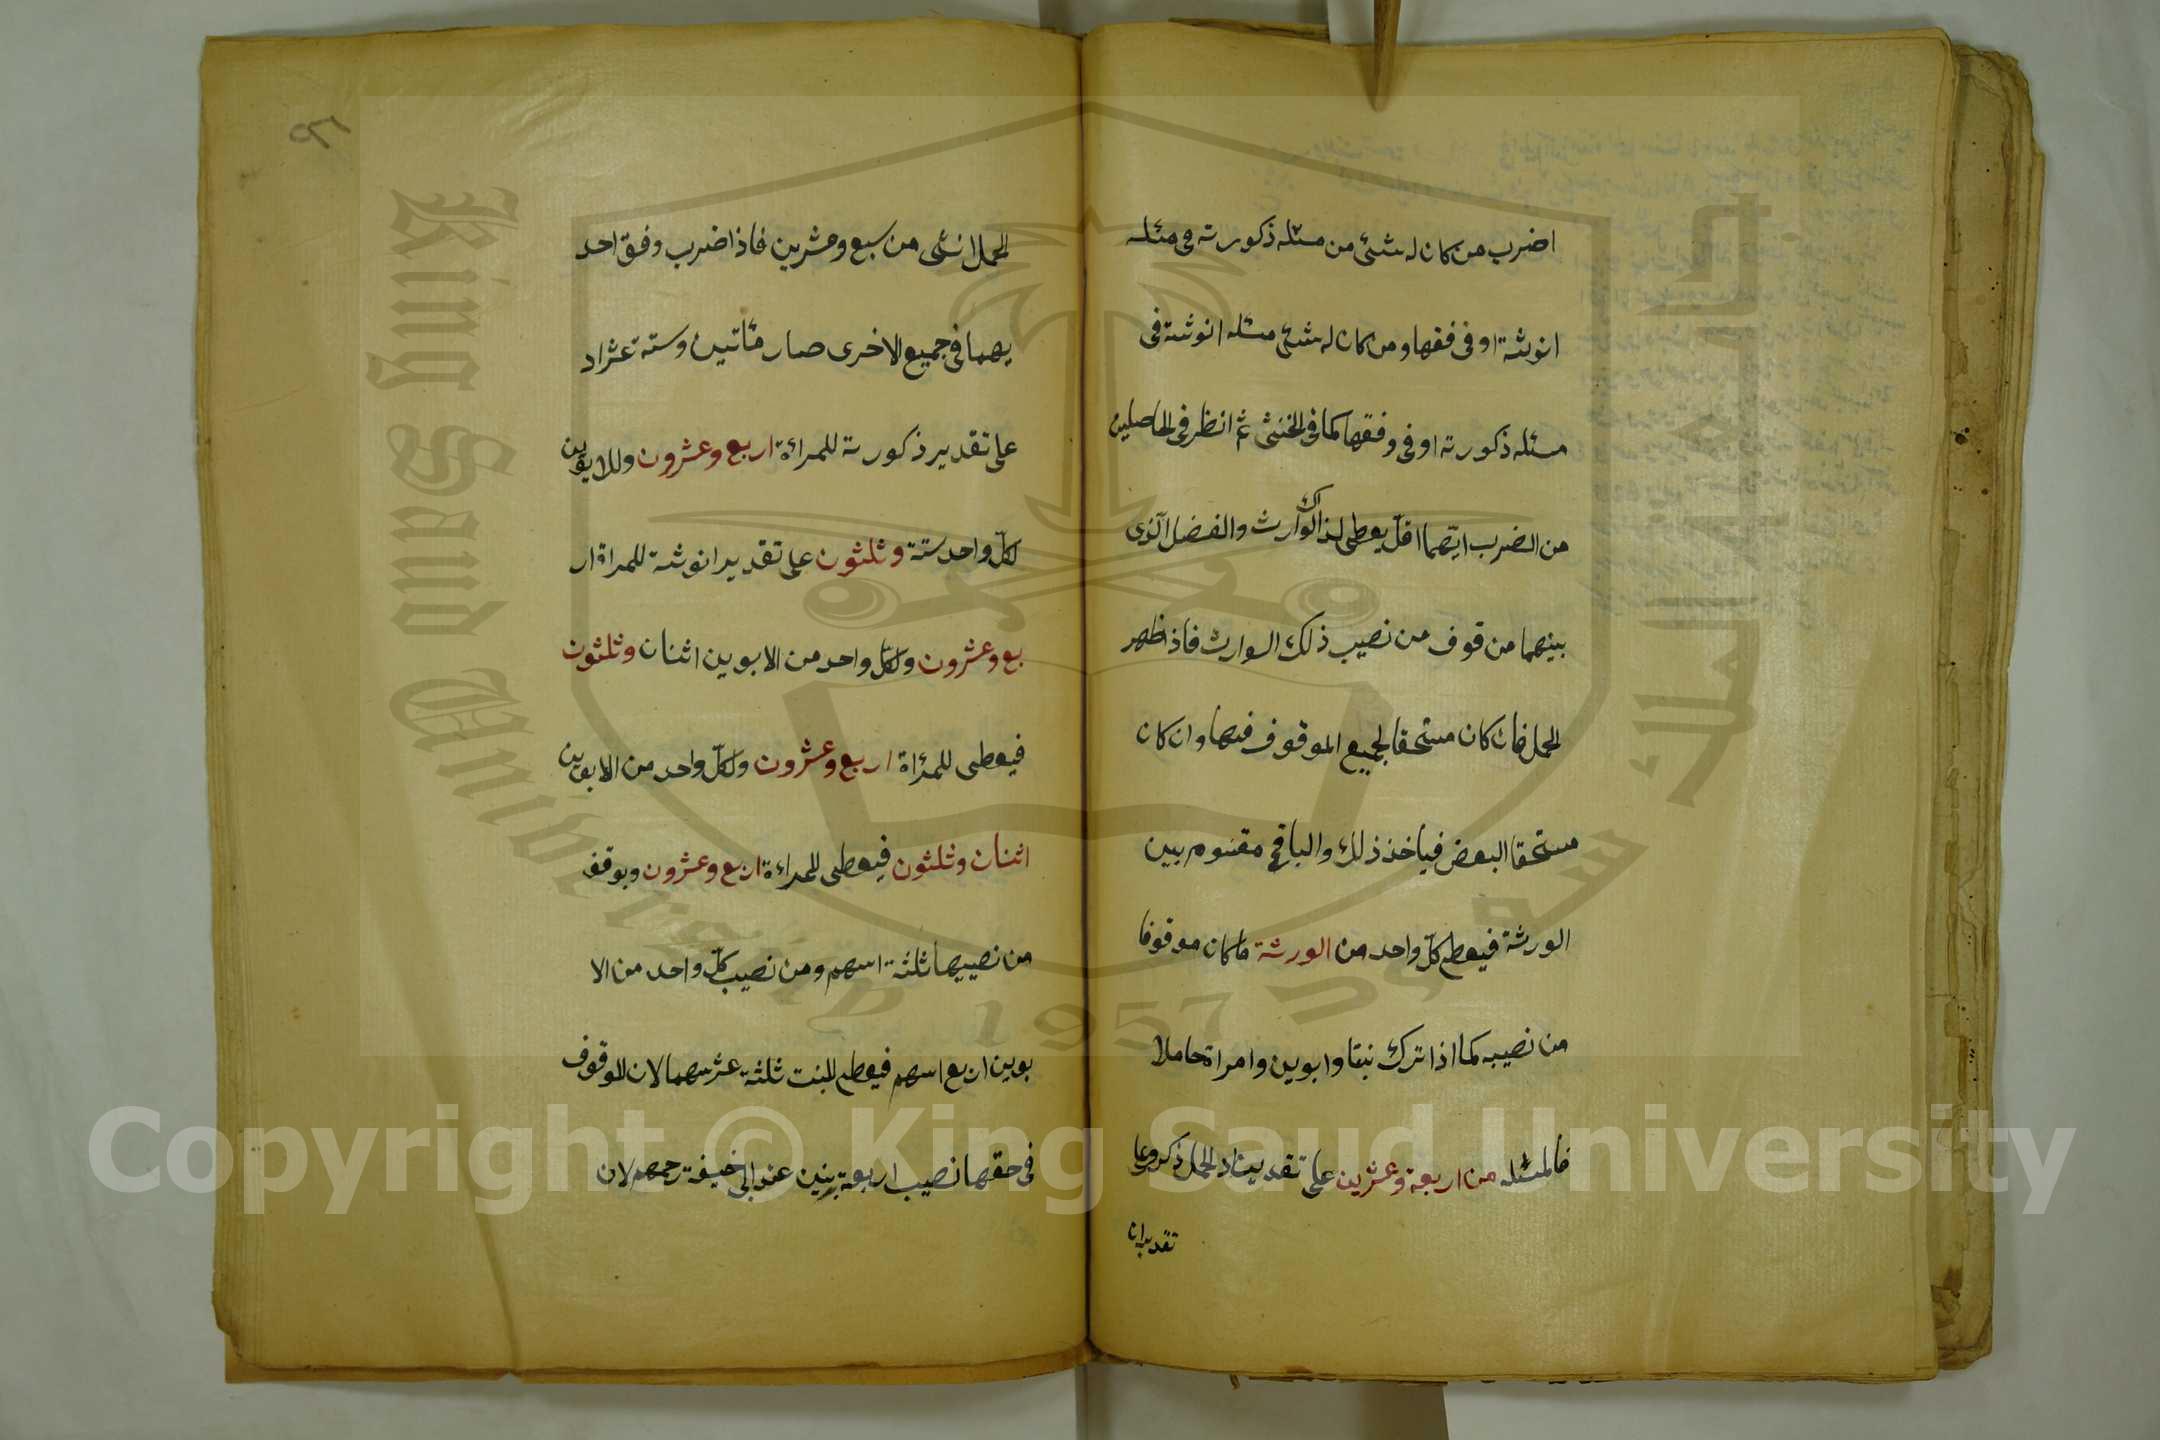 اضرب من كان له شئ من مسئله ذكورته في مئله
انوثته او في فقها ومن كان له شئ مسئله انوثته في
مسئله ذكورته او في وفقها كما في الخنثى ثم انظر في الحاصلين
من الضرب ايتهما اقل يعطى لذالك الوارث والفضل الذى
بينهما من قوف من نصيب ذلك الوارث فاذا ظهر
الحمل فان كان مستحقا لجميع الموقوف فبها وان كان
مستحقا البعض فياخذ ذلك والباقى مقسوم بين
الورثة فيعطى كل واحد من الورثة ما كان موقوفا
من نصيبه كما اذا ترك بنتا وابوين وامراة حاملا
فالمسئله من اربعة وعشرين على تقدير الحمل ذكر وعلى
تقديران
الحمل انثى من سبع وعشرين فاذا ضرب وفق احد
يهما في جميع الاخرى صار مأتين وستة عشر اذ
على تقدير ذكورته للمرأة اربع وعشرون وللابوين
لكل واحد ستة وثلثون على تقدير انوثته للمراة ار
بع وعشرون ولكل واحد من الابوين اثنان وثلثون
فيعطى للمرأة اربع وعشرون ولكل واحد من الابوين
اثنان وثلثون فيعطى للمراءة اربع وعشرون ويوقف
من نصيبها ثلثة اسهم ومن نصيب كل واحد من الا
بوين اربع اسهم فيعطى للبنت ثلثة عشر سهما لان الموقوف
في حقها نصيب اربعة بنين عند ابى حنيفة رحمهم لان
Copyright © King Saud University
King Saud University 1957